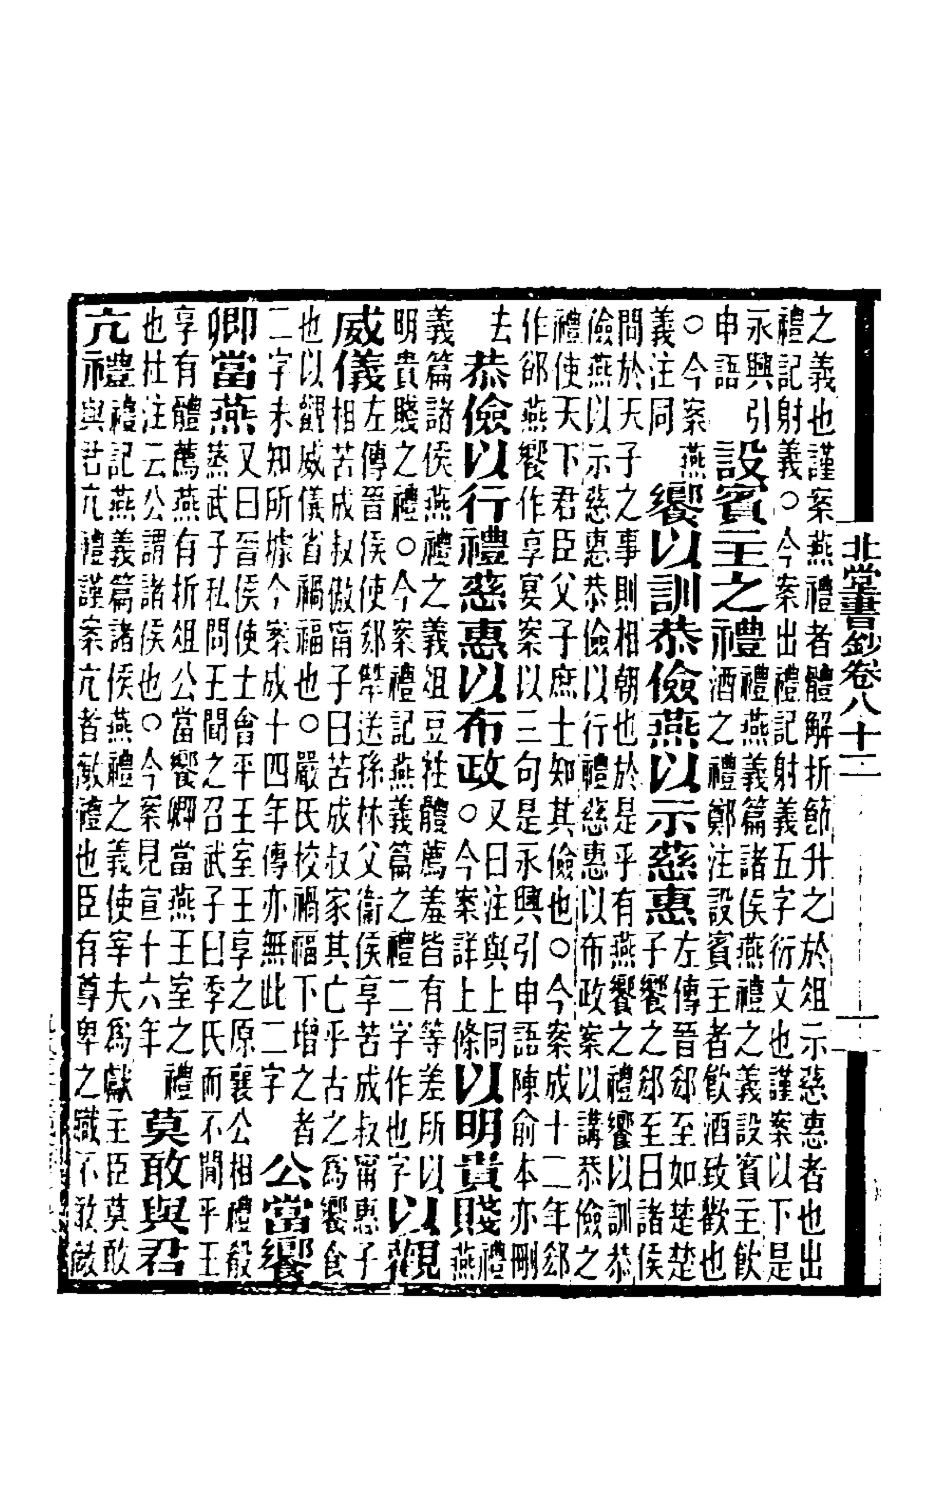 北堂書鈔卷八十二
之義也謹案燕禮者體解折節升之於俎示慈惠者也出
禮記射義○今案出禮記射義五字衍文也謹案以下是
永興引
申語
設賓主之禮
禮燕義篇諸侯燕禮之義設賓主飲
酒之禮鄭注設賓主者飲酒致歡也
○今案燕
義注同
饗以訓恭儉燕以示慈惠
左傳晉郤至如楚楚
子饗之郤至曰諸侯
問於天子之事則相朝也於是乎有燕饗之禮饗以訓恭
儉燕以示慈惠恭儉以行禮慈惠以布政案以講恭儉之
禮使天下君臣父子庶士知其儉也○今案成十二年郤
作郤燕饗作享宴案以三句是永興引申語陳俞本亦刪
去
恭儉以行禮慈惠以布政
又曰注與上同
○今案詳上條
以明貴賤
禮
燕
義篇諸侯燕禮之義俎豆牲體薦羞皆有等差所以
明貴賤之禮○今案禮記燕義篇之禮二字作也字
以觀
威儀
左傳晉侯使郤犨送孫林父衛侯享苦成叔甯惠子
相苦成叔傲甯子曰苦成叔家其亡乎古之爲饗食
也以觀威儀省禍福也○嚴氏校禍福下增之者
二字未知所據今案成十四年傳亦無此二字
公當饗
卿當燕
又曰晉侯使士會平王室王享之原襄公相禮殽
蒸武子私問王聞之召武子曰季氏而不聞乎王
享有體薦燕有折俎公當饗卿當燕王室之禮
也杜注云公謂諸侯也○今案見宣十六年
莫敢與君
亢禮
禮記燕義篇諸侯燕禮之義使宰夫爲獻主臣莫敢
與君亢禮謹案亢者敵禮也臣有尊卑之職不敢敵